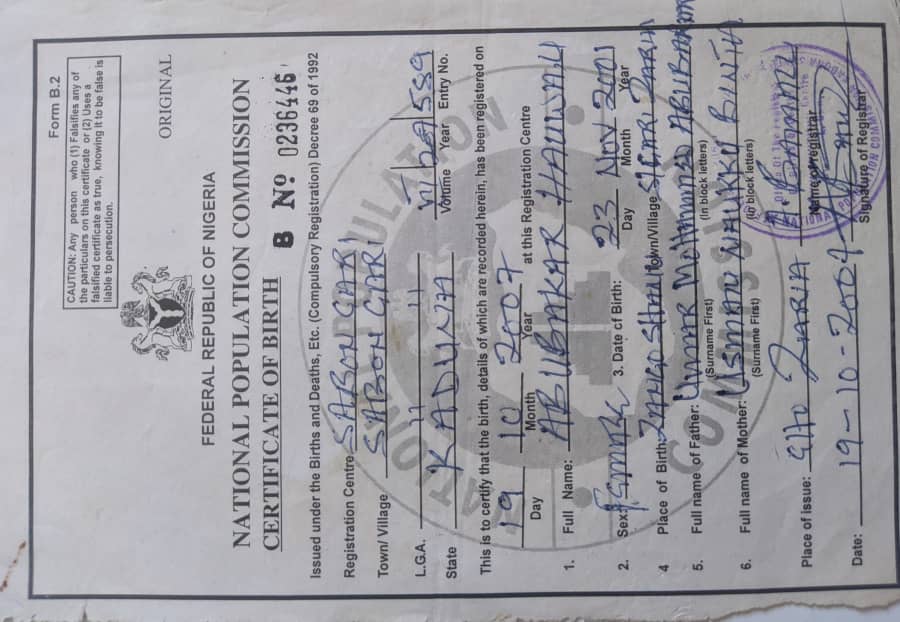 Form B.2
CAUTION: Any person who (1) Falsifies any of
the particulars on this certificate or (2) Uses a
falsified certificate as true, knowing it to be false is
liable to persecution.
ORIGINAL
FEDERAL REPUBLIC OF NIGERIA
NATIONAL POPULATION COMMISSION
CERTIFICATE OF BIRTH B Nº 0236446
Issued under the Births and Deaths, Etc. (Compulsory Registration) Decree 69 of 1992
Registration Centre SABON GARI
Town/ Village SABON GARI
L.G.A. 11 11
State KADUNA 589
Volume Year Entry No.
This is to certify that the birth, details of which are recorded herein, has been registered on
19 10 2007 at this Registration Centre
Day Month Year
1. Full Name: ABUBAKAR HAUWAU
2. Sex: FEMALE 3. Date of Birth: 23 NOV 2001
Day Month Year
4 Place of Birth Town/Village ZARIA
5. Full name of Father: UMAR MOHAMMAD ABUBAKAR
(Surname First) (In block letters)
6. Full name of Mother: USMAN BINTA
(Surname First) (In block letters)
Place of issue: ZARIA
Name of registrar
Date: 19-10-2007
Signature of Registrar
NATIONAL POPULATION COMMISSION